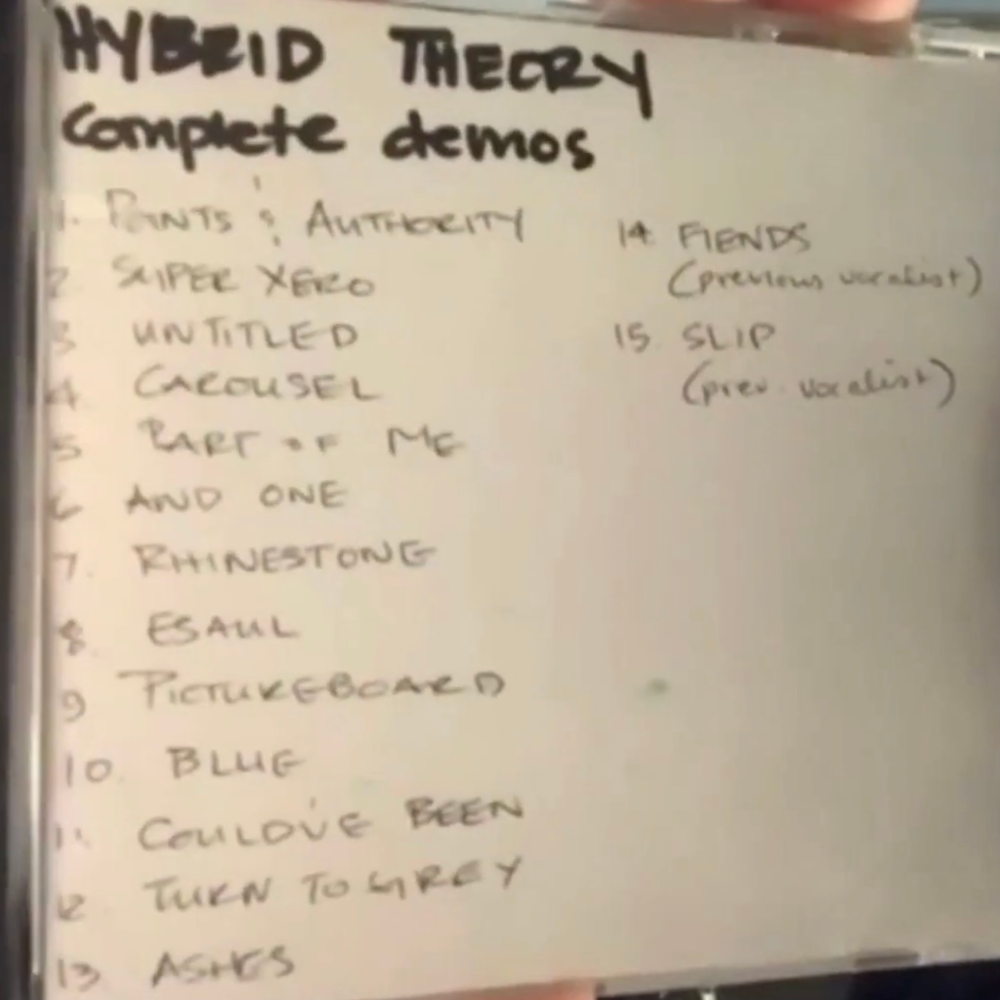 HYBRID THEORY
Complete demos
1. POINTS & AUTHORITY
2 SUPER XERO
3 UNTITLED
4 CAROUSEL
5 PART OF ME
6 AND ONE
7. RHINESTONE
8 ESAUL
9 PICTUREBOARD
10 BLUE
11. COULD'VE BEEN
12 TURN TO GREY
13 ASHES
14 FIENDS
(previous vocalist)
15 SLIP
(prev. vocalist)